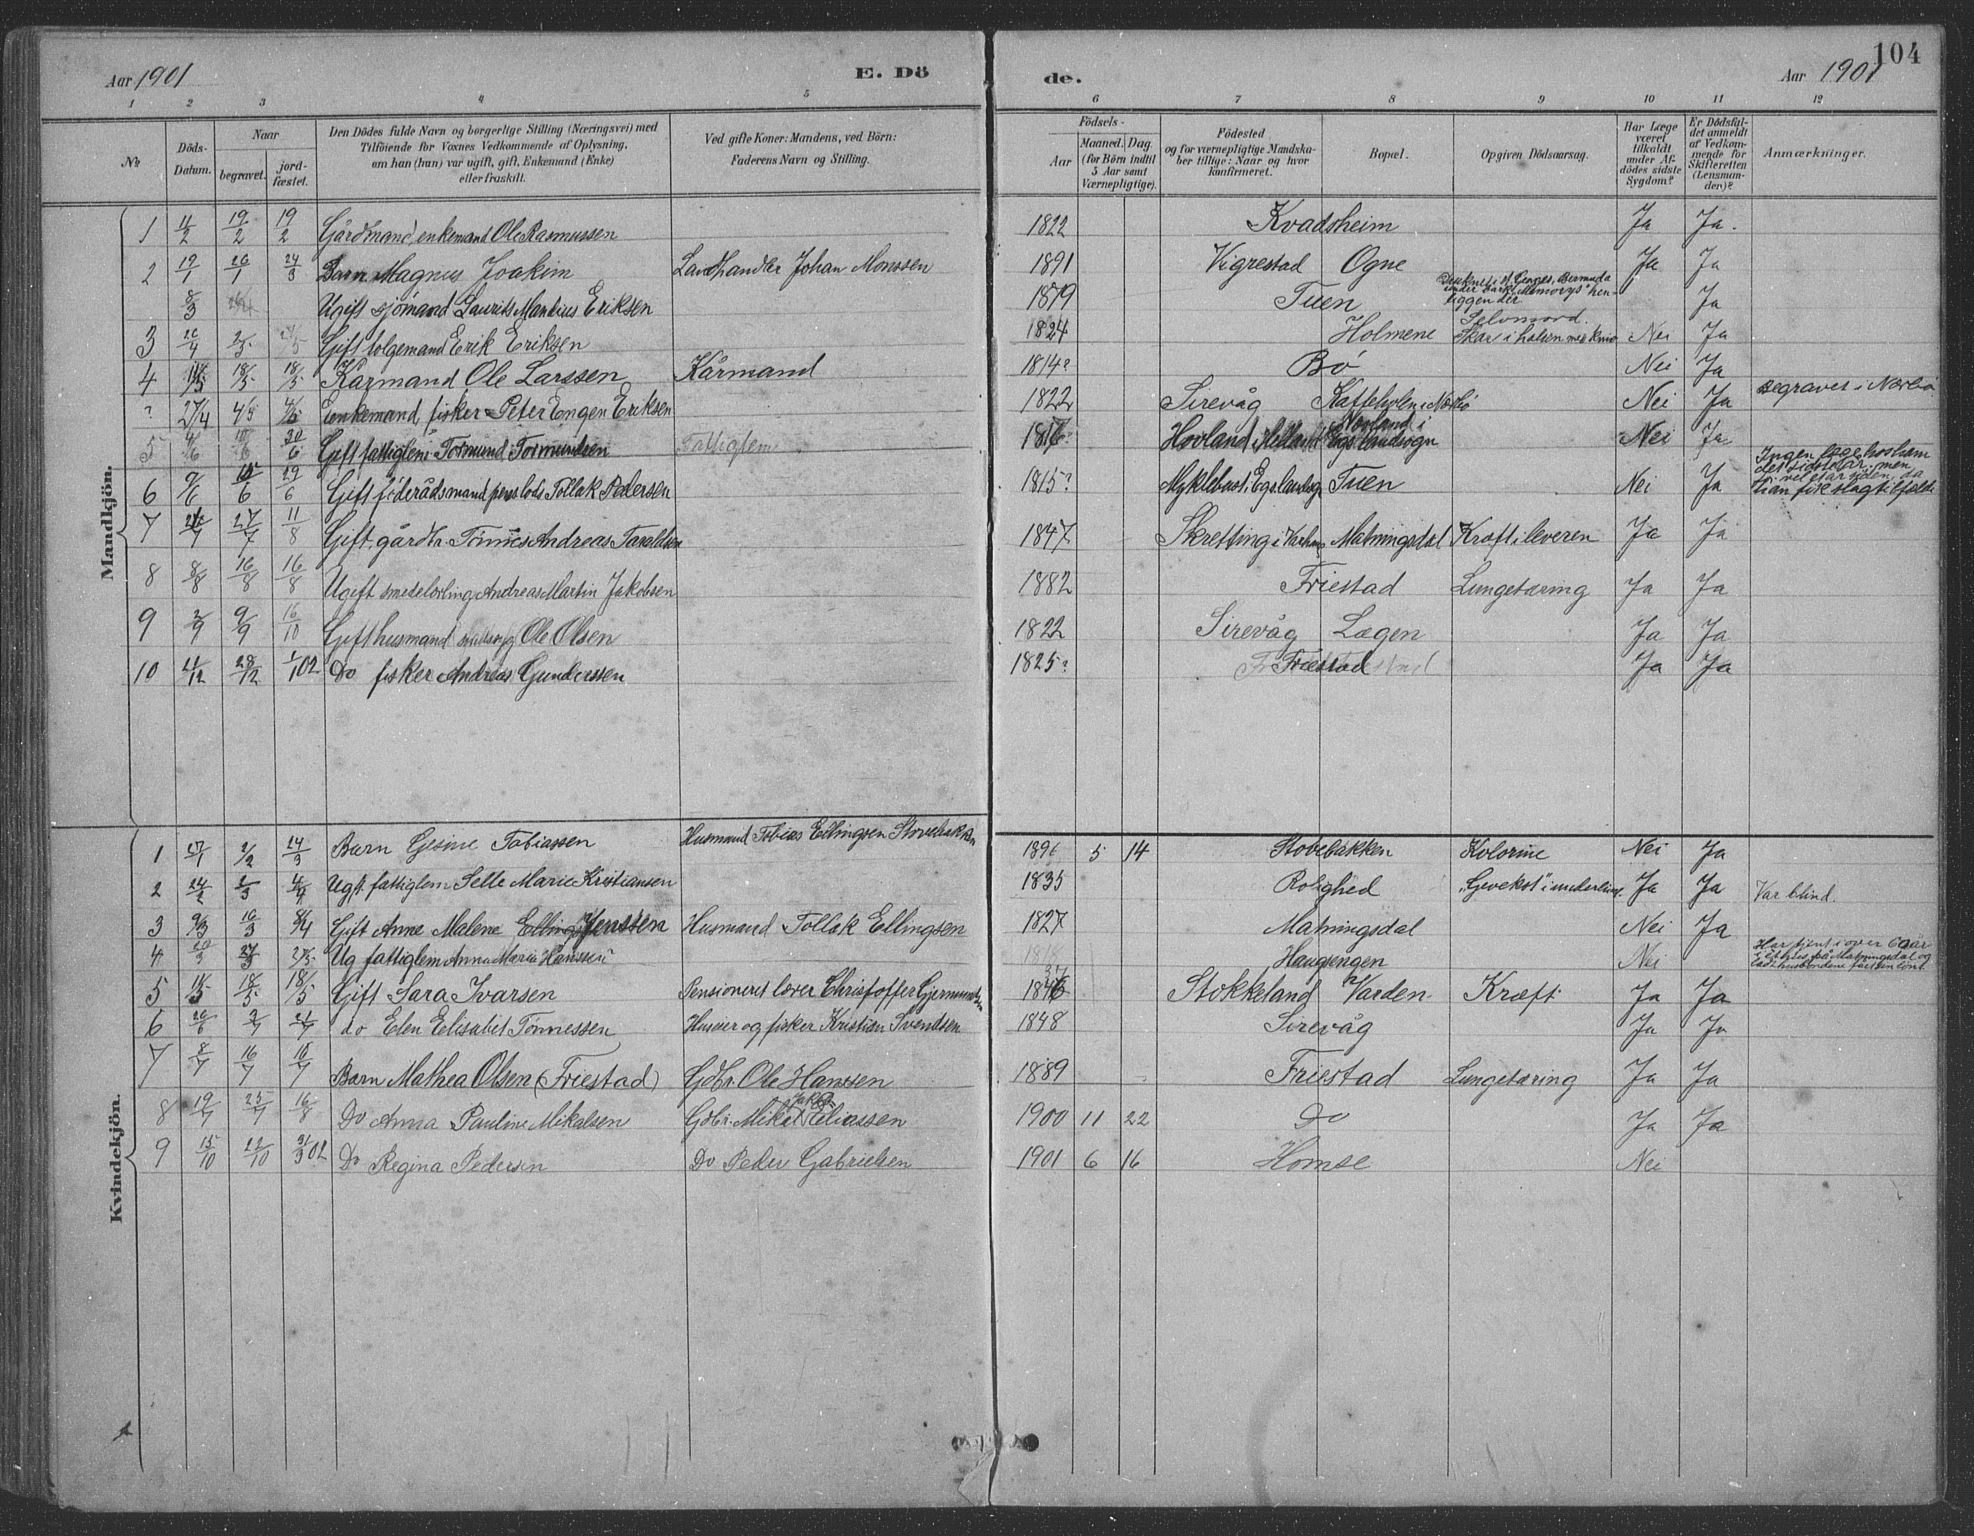 104
Aar 1901 E. Dö de. Aar 1901
1 2 3 4 5 6 7 8 9 10 11 12
№ Döds-Datum. Naar begravet. jord-fæstet. Den Dödes fulde Navn og borgerlige Stilling (Næringsvei) med Tilföiende for Voxnes Vedkommende af Oplysning, om han (hun) var ugift, gift, Enkemand (Enke) eller fraskilt. Ved gifte Koner: Mandens, ved Börn: Faderens Navn og Stilling. Födsels- Aar Maaned. Dag. (for Börn indtil 5 Aar samt Værnepligtige). Födested og for værnepligtige Mandskaber tillige: Naar og hvor konfirmeret. Bopæl. Opgiven Dödsaarsag. Har Læge været tilkaldt under Afdödes sidste Sygdom? Er Dödsfaldet anmeldt af Vedkommende for Skifteretten (Lensmanden)? Anmærkninger.
Mandkjön.
1 4/2 19/2 19/2 Gårdmand, enkemand Ole Rasmussen 1822 Kvadsheim Ja Ja.
2 19/1 26/1 24/3 Barn Magnus Joakim Landhandler Johan Monssen 1891 Vigrestad Ogne Ja Ja
8/3 Ugift sjömand Laurits Mantius Eriksen 1879 Tuen Druknet i St. Georges, Bermuda under bark "Memorys" henliggen der Ja
3 26/4 2/5 Gift tolgemand Erik Eriksen 1824 Holmene Selvmord. Skar i halsen med kniv Nei Ja
4 18/5 18/5 Kårmand Ole Larssen Kårmand 1814? Bö Nei Ja
? 27/4 4/5 4/5 Eenkemand, fisker Peter Engen Eriksen 1822 Sirevåg Nei Ja Begraves i Nærbö
5 30/6 Gift fattiglem Tormund Tormundsen Fattiglem Hovland i Helland Hovland i Egs landsogn Nei Ja
6 9/6 15/6 29/6 Gift föderådsmand pens lods Tollak Pedersen 1815? Myklebust i Egs.landsogn Tuen Nei Ja Ingen læge hos ham det sidste år, men
7 27/7 11/8 Gift gårdbr. Tönnes Andreas Taraldsen 1847 Skretting i Varhaug Matningsdal Kræft i leveren Ja Ja
8 8/8 16/8 16/8 Ugift smedelærling Andreas Martin Jakobsen 1882 Friestad Lungetæring Ja Ja
9 2/9 9/9 16/10 Gift husmand Ole Olsen 1822 Sirevåg Lægen Ja Ja
10 21/12 28/12 1/1 02 Do fisker Andreas Gunderssen 1825? Friestad Ja Ja
Kvindekjön.
1 27/1 2/2 24/3 Barn Gesine Tobiassen Husmand Tobias Ellingsen Stovebakken 1896 5 14 Stovebakken Kolorine Nei Ja
2 24/2 2/3 4/4 Ugift. fattiglem Selle Marie Kristiansen 1835 Rolighed "Gevekst" i underlivet. Ja Ja Var blind.
3 9/3 16/3 8/4 Gift Anne Malene Jenssen Husmand Tollak Ellingsen 1827 Matningsdal Nei Ja
4 20/3 27/3 27/5 Ug fattiglem Anna Marie Hanssen Haugengen Nei Har tjent i over 60 år i et hus på Matningsdal og
5 11/5 18/5 18/5 Gift Sara Ivarsen Pensioneret lærer Christoffer Gjermundsen 1846 Stokkeland Varden Kræft Ja Ja
6 26/6 3/7 21/7 do Elen Elisabet Tönnessen Huseier og fisker Kristian Svendsen 1848 Sirevåg Ja Ja
7 8/7 16/7 16/7 Barn Mathea Olsen (Friestad) Gdbr. Ole Hanssen 1889 Friestad Lungetæring Ja Ja
8 19/7 25/7 16/8 Do Anna Pauline Mikalsen Gdbr. Mikal Jakob Eliassen 1900 11 22 Do Ja Ja
9 15/10 22/10 31/3 02 Do Regina Pedersen Do Peder Gabrielsen 1901 6 16 Homse Nei